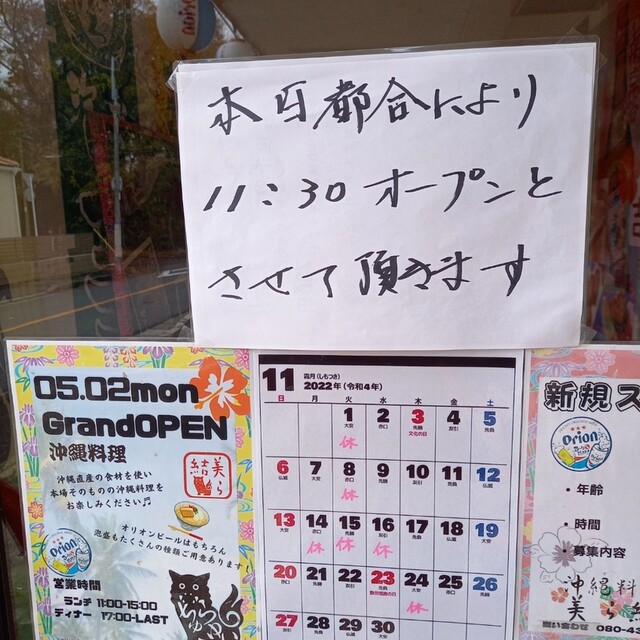 本日都合により
11:30 オープンと
させて頂きます
05.02mon
GrandOPEN
沖縄料理
沖縄直産の食材を使い
本場そのものの沖縄料理を
お楽しみください♬
結美ら
オリオンビールはもちろん
泡盛もたくさんの種類ご用意あります
Orion
営業時間
ランチ 11:00-15:00
ディナー 17:00-LAST
11 霜月(しもつき)
2022年(令和4年)
日 月 火 水 木 金 土
1 2 3 4 5
大安 赤口 先勝 友引 先負
文化の日
休
6 7 8 9 10 11 12
仏滅 大安 赤口 先勝 友引 先負 仏滅
休
13 14 15 16 17 18 19
大安 赤口 先勝 友引 先負 仏滅 大安
休 休 休
20 21 22 23 24 25 26
勤労感謝の日
休
27 28 29 30
新規ス
Orion
・年齢
・時間
・募集内容
沖縄料
美
問い合わせ 080-43